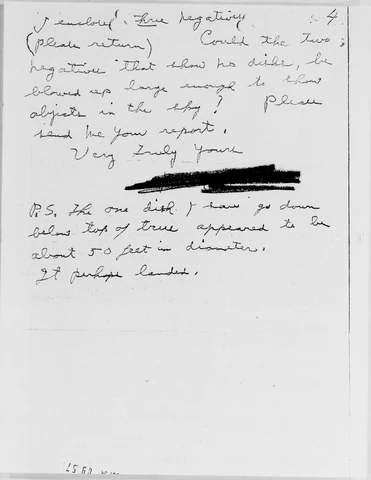 I enclose three negatives 4
(please return) Could the two
negatives that show no disks, be
blowed up large enough to show
objects in the sky? Please
send me your report.
Very Truly Yours
P.S. The one disk I saw go down
below top of trees appeared to be
about 50 feet in diameter.
It perhaps landed.